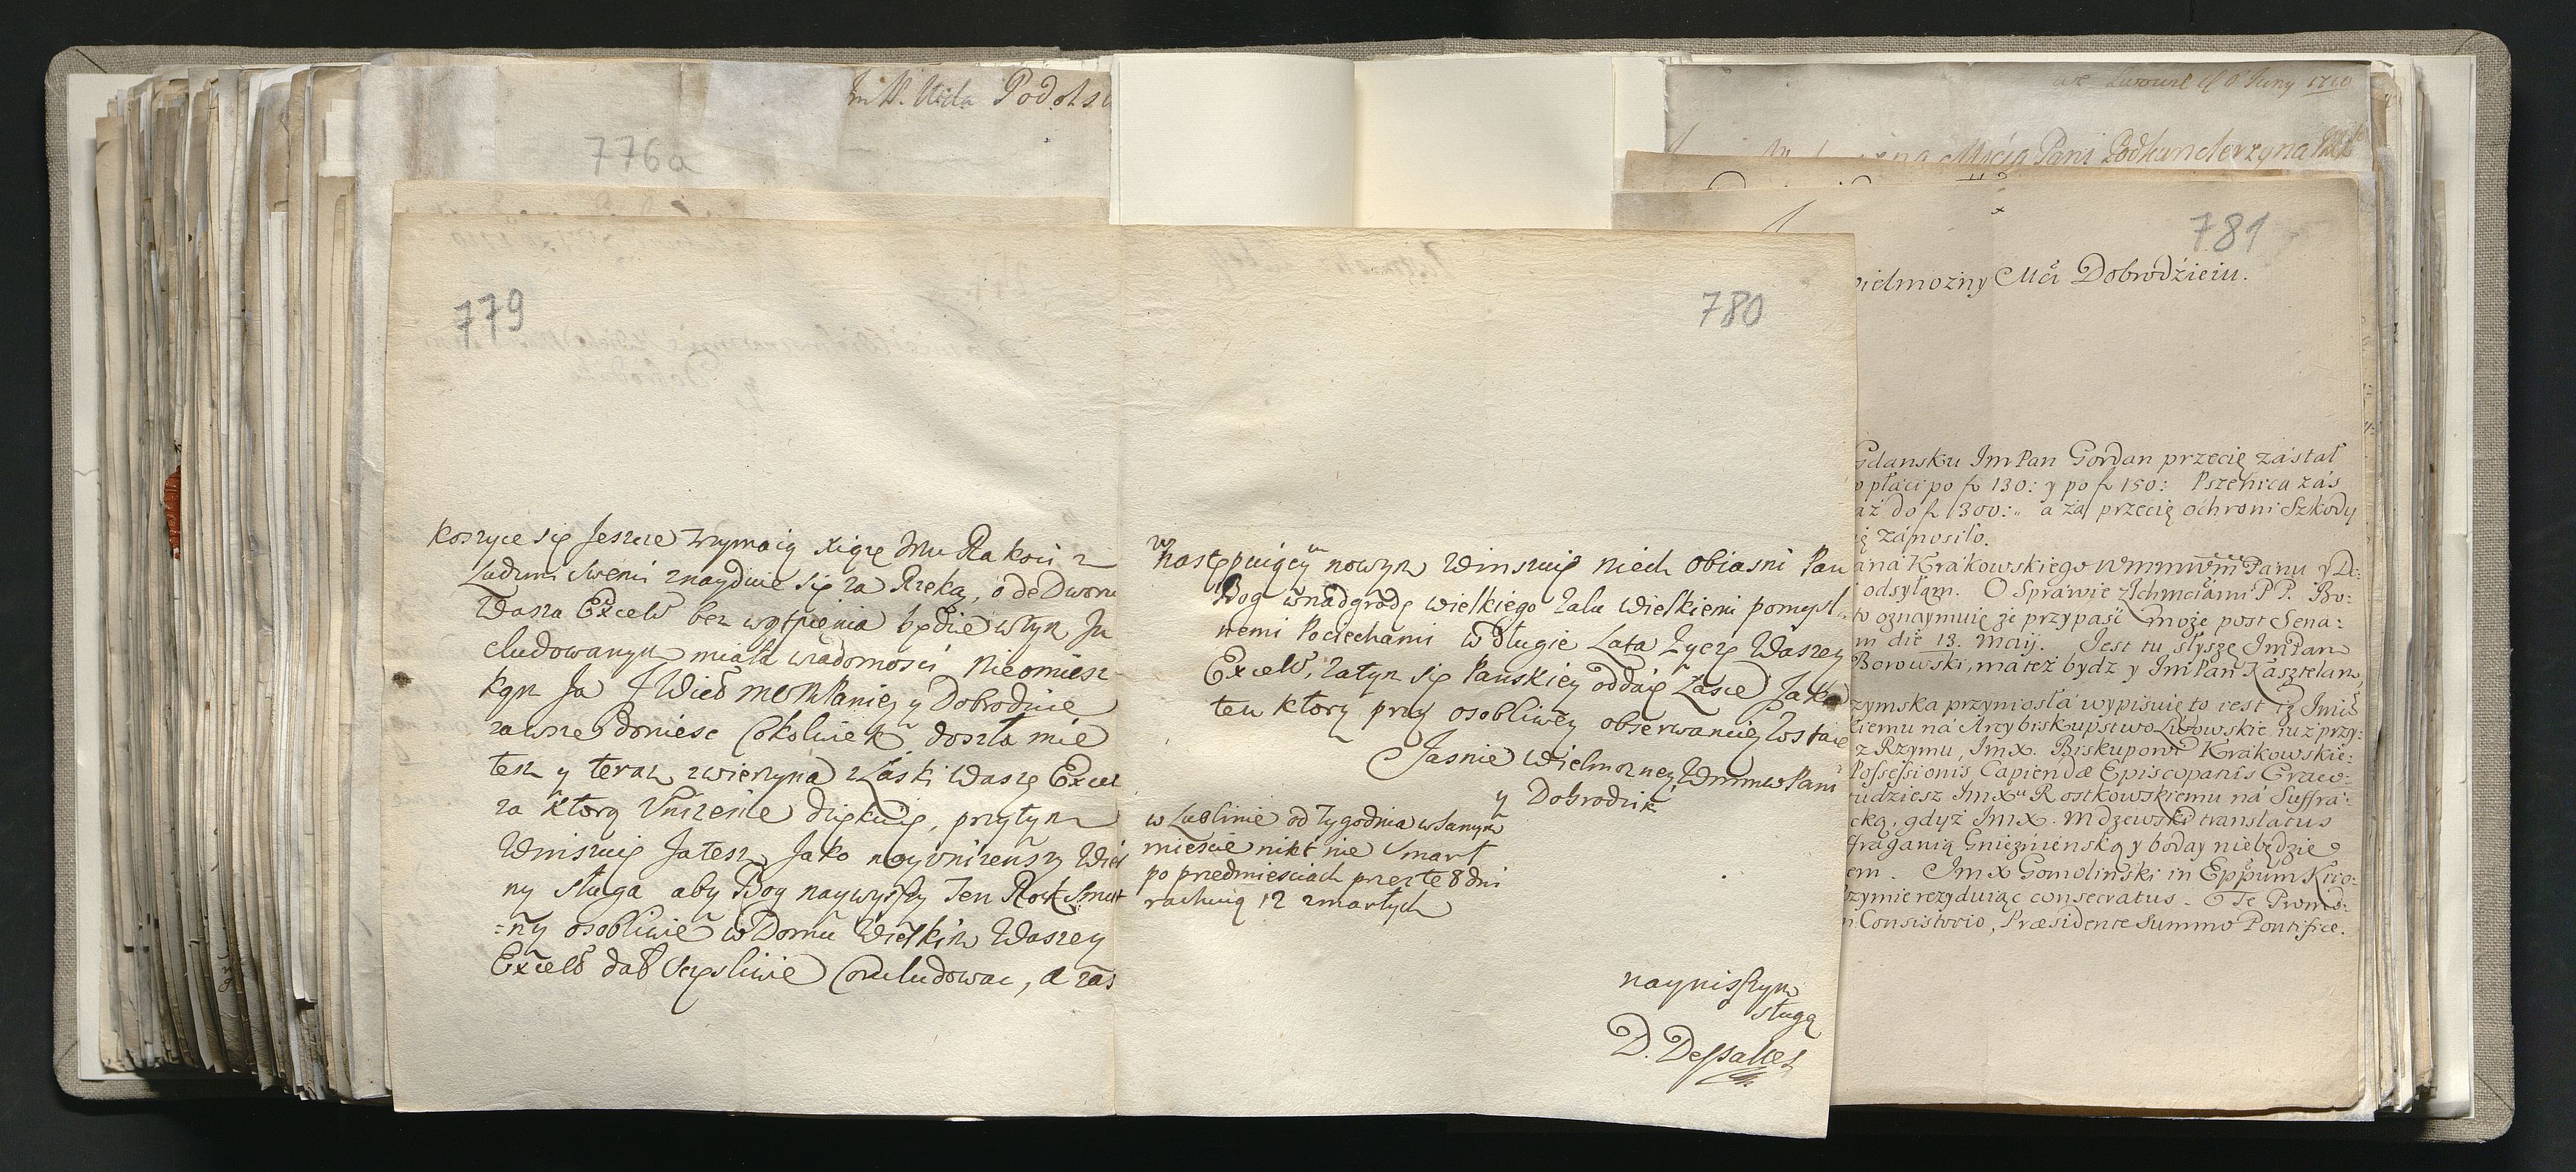 776a
779
Koszyce się Jeszcze trzymaią Xiąże Jmć Rakoci z
Ludzmi swemi znayduie się za Rzeką, o de Dworu
Wasza Excell bez wątpienia będzie w tym In
cludowanym miała wiadomosci nieomiesz
kam Ja J Wielb mosci Paniey y Dobrodzice
zawsze doniesc cokolwiek doszła mie
tesz y teraz zwierzyna z Łaski Waszey Excel
za ktorą Unizenie dziękuię, przytym
Winszuię Ja tesz Jako nayunizenszy Wier
ny sługa aby Bog naywyszszy Ten Rok Smut
=ny osobliwie w Domu Wielkim Waszey
Excell dał Szczęsliwie Concludowac, a zas
780
w następuiącym nowym Winszuię niech obiasni Pan
Bog w nadgrodę wielkiego żalu wielkiemi pomysl-
nemi Pociechami w długie Lata życzę Waszey
Excell, zatym się Panskiey oddaię Łasce Jako
ten ktory przy osobliwey obserwancyey zostaie
Jasnie Wielmozney WMMw Pani
y Dobrodzik
w Lublinie od Tygodnia w samym
miescie nikt nie Umarł
po przedmiesciach przez te 8 dni
rachuią 12 zmarłych
nayniszszym
sługą
D. Dessalles
1710
Pani Podkanclerzyna
781
ielmożny Mci Dobrodźieiu.
Gdansku ImPan Gordan przecię zástał
płáci po f 130: y po f 150: Pszenica zás
áż do f 1300: a zá przecię ochroni Szkody
zánosiło.
ana Krakowskiego Wmmwm Panu y D:
odsyłam. O Sprawie z Ichmciami PP. Bo:
to oznaymuię że przypaść może post Sena:
m die 13. Maij. Jest tu słyszę ImPan
Borowski, ma też bydz y ImPan Kasztelan
zymska przyniosłá wypisuię to iest iż Imć
kiemu ná Arcybiskupstwo Lwowskie iuż przy:
z Rzymu, ImX. Biskupowi Krakowskie:
Possessionis Capiendæ Episcopatus Crac:
udziesz ImXu Rostkowskiemu ná Suffra:
cką, gdyż ImX. Mdzewski translatus
fraganią Gnieźnienską y boday niebędzie
em. ImX Gomoliński in Eppum Kiio:
Rzymie rezyduiąc consecratus. Te Promo:
n Consistorio, Præsidente Summo Pontifice.